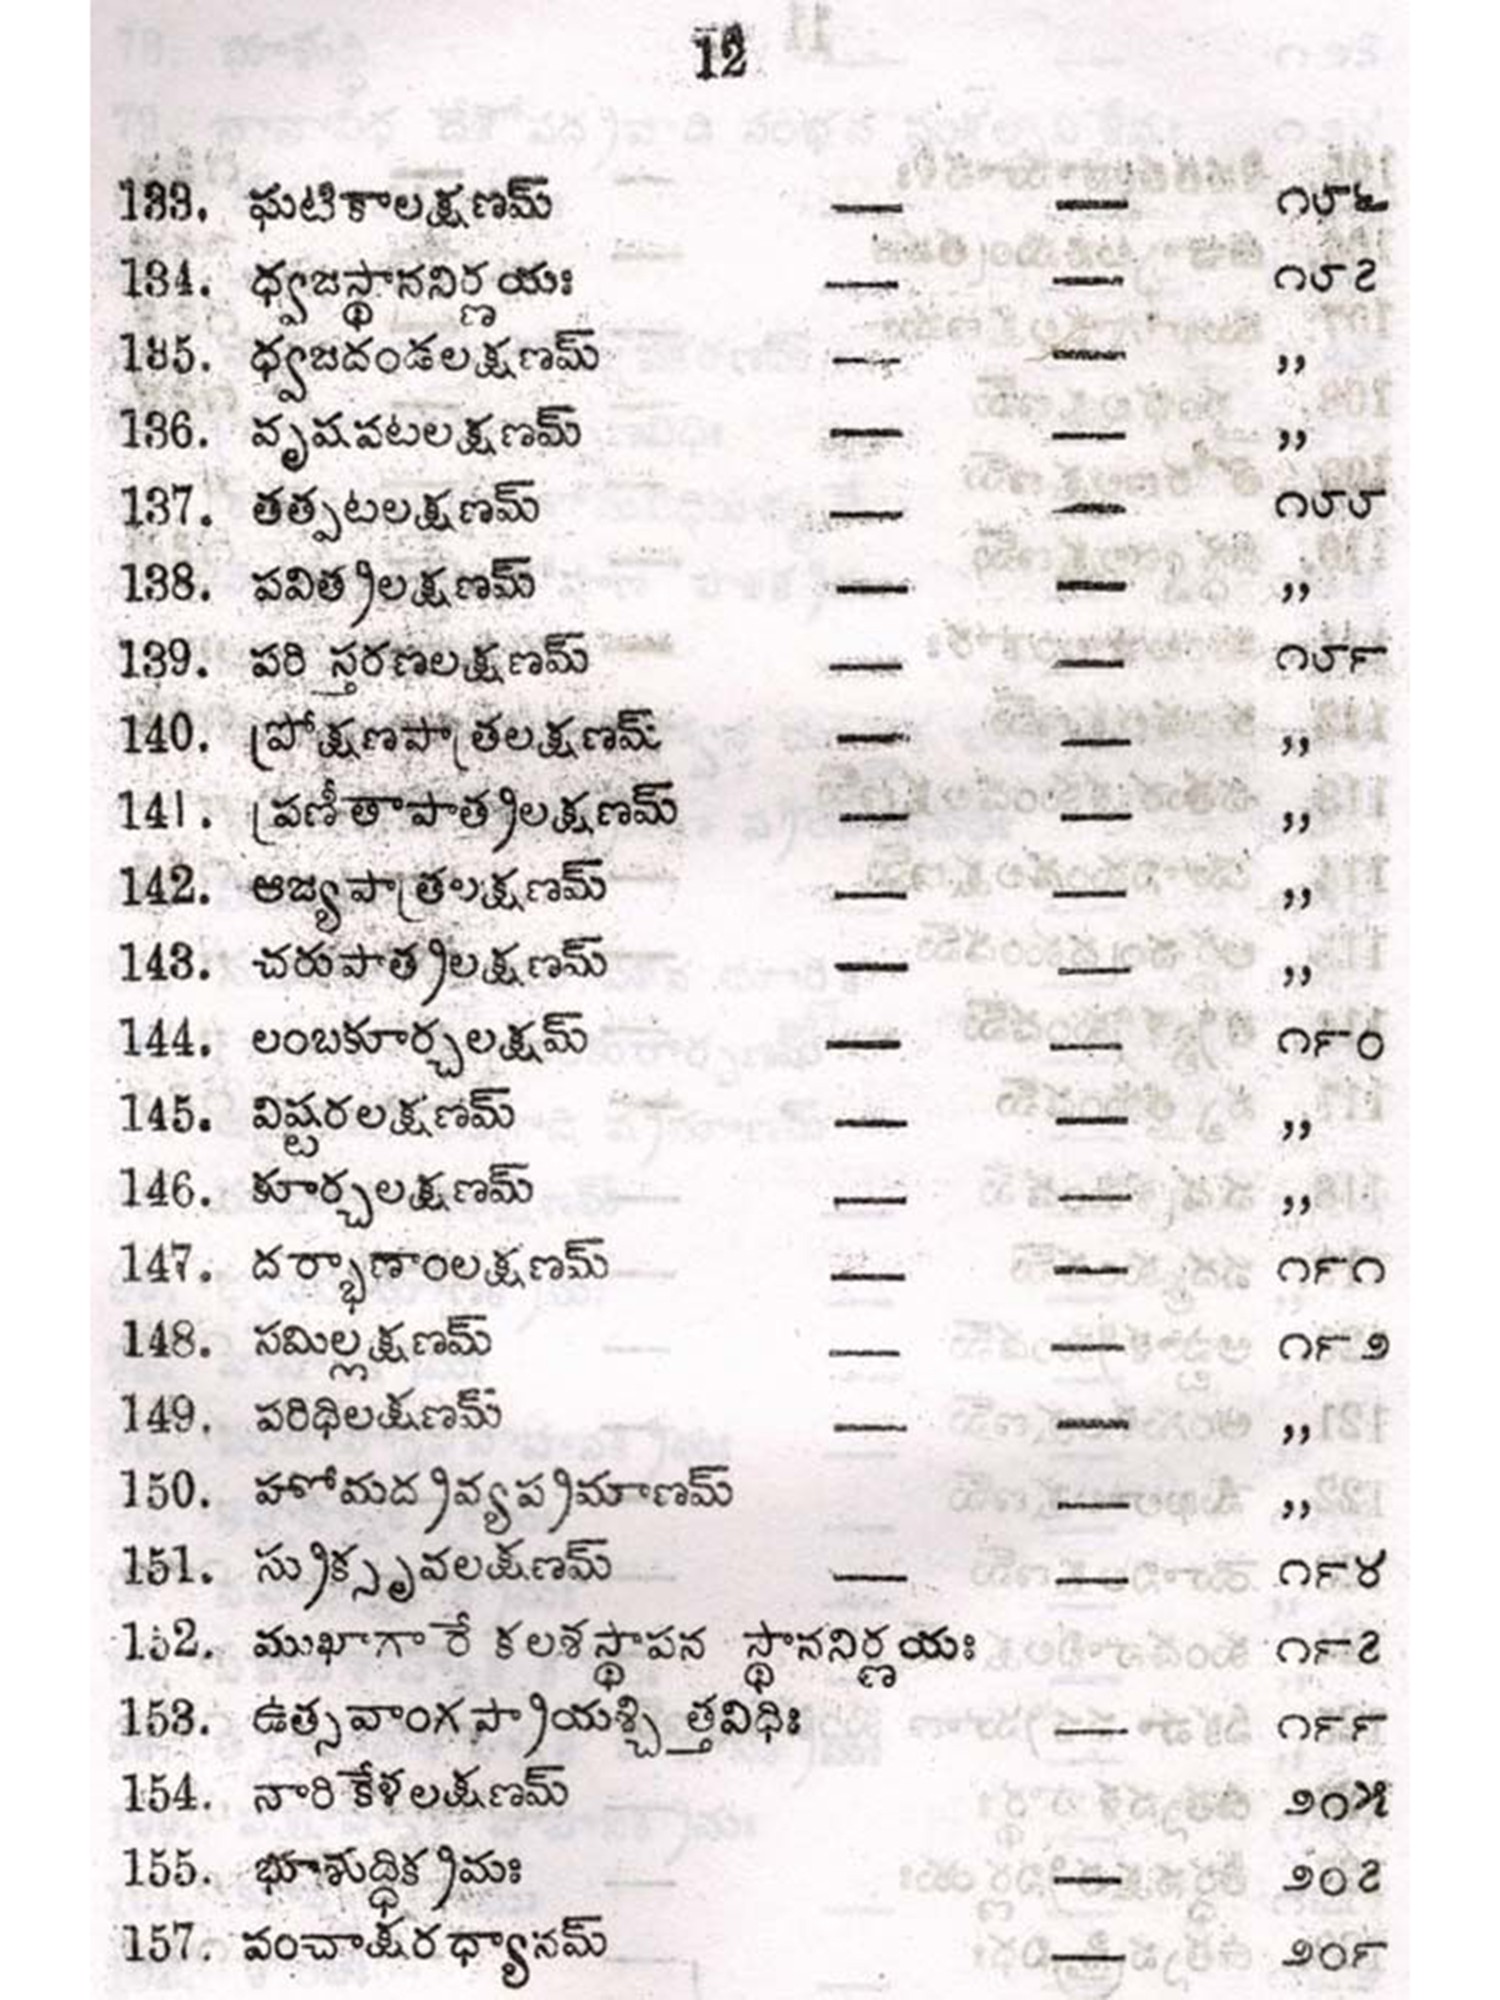 12
133. ఘటికాలక్షణమ్ — — ౧౮౬
134. ధ్వజస్థాననిర్ణయః — — ౧౮౭
135. ధ్వజదండలక్షణమ్ — — ,,
136. వృషపటలక్షణమ్ — — ,,
137. తత్పటలక్షణమ్ — — ౧౮౮
138. పవిత్రలక్షణమ్ — — ,,
139. పరిస్తరణలక్షణమ్ — — ౧౮౯
140. ప్రోక్షణపాత్రలక్షణమ్ — — ,,
141. ప్రణీతాపాత్రలక్షణమ్ — — ,,
142. ఆజ్యపాత్రలక్షణమ్ — — ,,
143. చరుపాత్రలక్షణమ్ — — ,,
144. లంబకూర్చలక్షమ్ — — ౧౯౦
145. విష్టరలక్షణమ్ — — ,,
146. కూర్చలక్షణమ్ — — ,,
147. దర్భాణాంలక్షణమ్ — — ౧౯౧
148. సమిల్లక్షణమ్ — — ౧౯౨
149. పరిధిలక్షణమ్ — — ,,
150. హోమద్రవ్యప్రమాణమ్ — ,,
151. స్రుక్సృవలక్షణమ్ — — ౧౯౪
152. ముఖాగారే కలశస్థాపన స్థాననిర్ణయః ౧౯౭
153. ఉత్సవాంగప్రాయశ్చిత్తవిధిః — ౧౯౯
154. నారికేళలక్షణమ్ ౨౦౫
155. భూశుద్ధిక్రమః — ౨౦౭
157. పంచాక్షరధ్యానమ్ — ౨౦౯